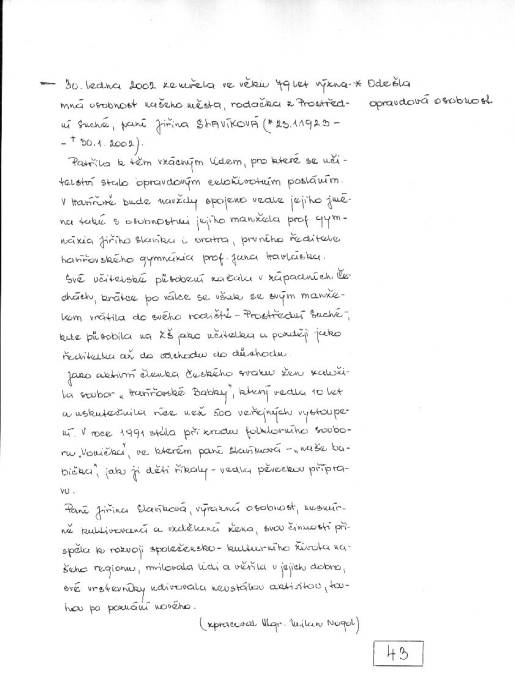 — 30. ledna 2002 zemřela ve věku 79 let význa- * Odešla
mná osobnost našeho města, rodačka z Prostřed- opravdová osobnost
ní Suché, paní Jiřina SLAVÍKOVÁ (* 23.1 1923 –
– † 30.1.2002).
Patřila k těm vzácným lidem, pro které se uči-
telství stalo opravdovým celoživotním posláním.
V Havířově bude navždy spojeno vedle jejího jmé-
na také s osobnostmi jejího manžela prof. gym-
názia Jiřího Slavíka i bratra, prvního ředitele
havířovského gymnázia prof. Jana Havláska.
Své učitelské působení začala v západních Če-
chách, krátce po válce se však se svým manže-
lem vrátila do svého rodiště - Prostřední Suché,
kde působila na ZŠ jako učitelka a později jako
ředitelka až do odchodu do důchodu.
Jako aktivní členka Českého svazu žen založi-
la soubor „Havířovské Babky", který vedla 10 let
a uskutečnila více než 500 veřejných vystoupe-
ní. V roce 1991 stála při zrodu folklorního soubo-
ru „Vonička", ve kterém paní Slavíková - „naše ba-
bička", jak ji děti říkaly - vedla pěveckou přípra-
vu.
Paní Jiřina Slavíková, výrazná osobnost, nesmír-
ně kultivovaná a vzdělaná žena, svou činností při-
spěla k rozvoji společensko-kulturního života na-
šeho regionu, milovala lidi a věřila v jejich dobro,
své vrstevníky udivovala neustálou aktivitou, tou-
hou po poznání nového.
(zpracoval Mgr. Milan Nogol)
43